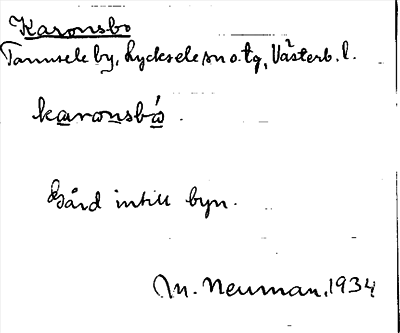 Karonsbo
Tannsele by, Lycksele sn o. tg, Västerb. l.
karonsbó.
Gård intill byn.
M. Neuman, 1934